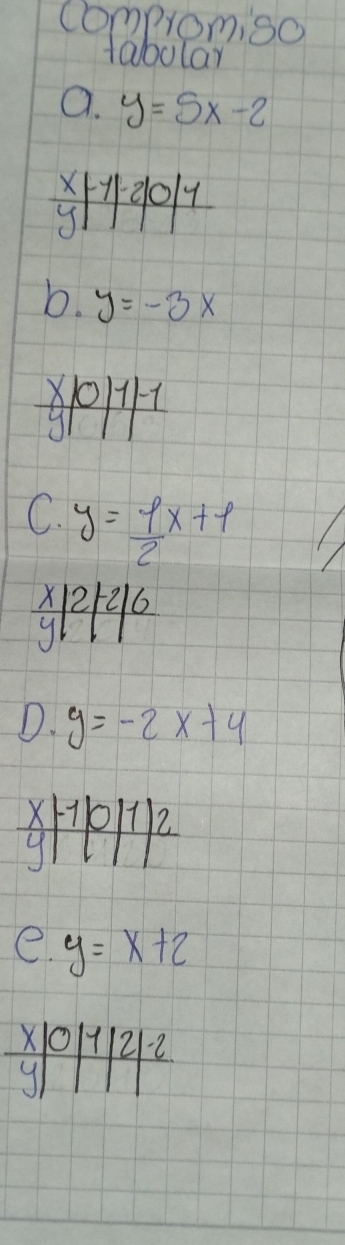 Compromiso
tabular
a. y = 5x - 2
x | -1 | -2 | 0 | 1
y | | | |
b. y = -3x
x | 0 | 1 | -1
y | | |
C. y = 1/2 x + 1
x | 2 | -2 | 6
y | | |
D. y = -2x + 4
x | -1 | 0 | 1 | 2
y | | | |
e. y = x + 2
x | 0 | 1 | 2 | -2
y | | | |